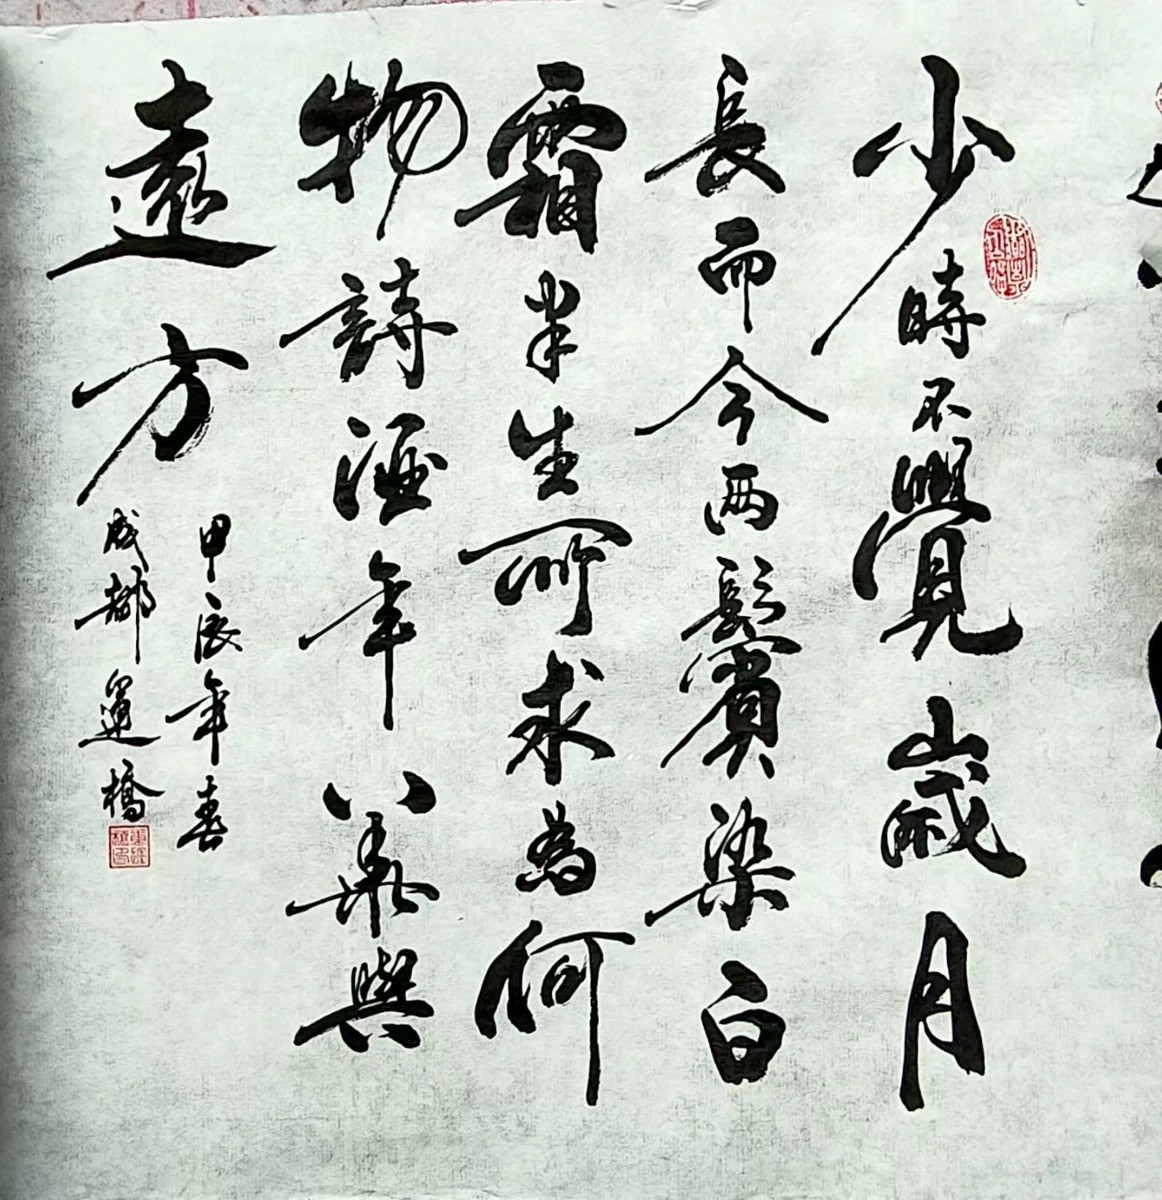 少時不覺歲月
長而今兩鬢染白
霜半生所求為何
物詩酒年華與
遠方
甲辰年春
成都運橋